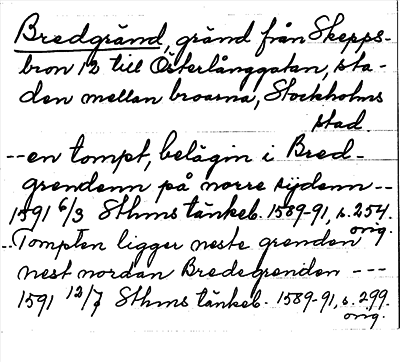 Bredgränd, gränd från Skepps-
bron 12 till Österlånggatan, sta-
den mellan broarna, Stockholms
stad.
--en tompt, belägin i Bred-
grendenn på norre sijdenn--
1591 6/3 Sthms tänkeb. 1589-91, s. 254.
orig.
--Tompten ligger neste grenden
nest nordan Bredegrenden ---
1591 12/7 Sthms tänkeb. 1589-91, s. 299.
orig.